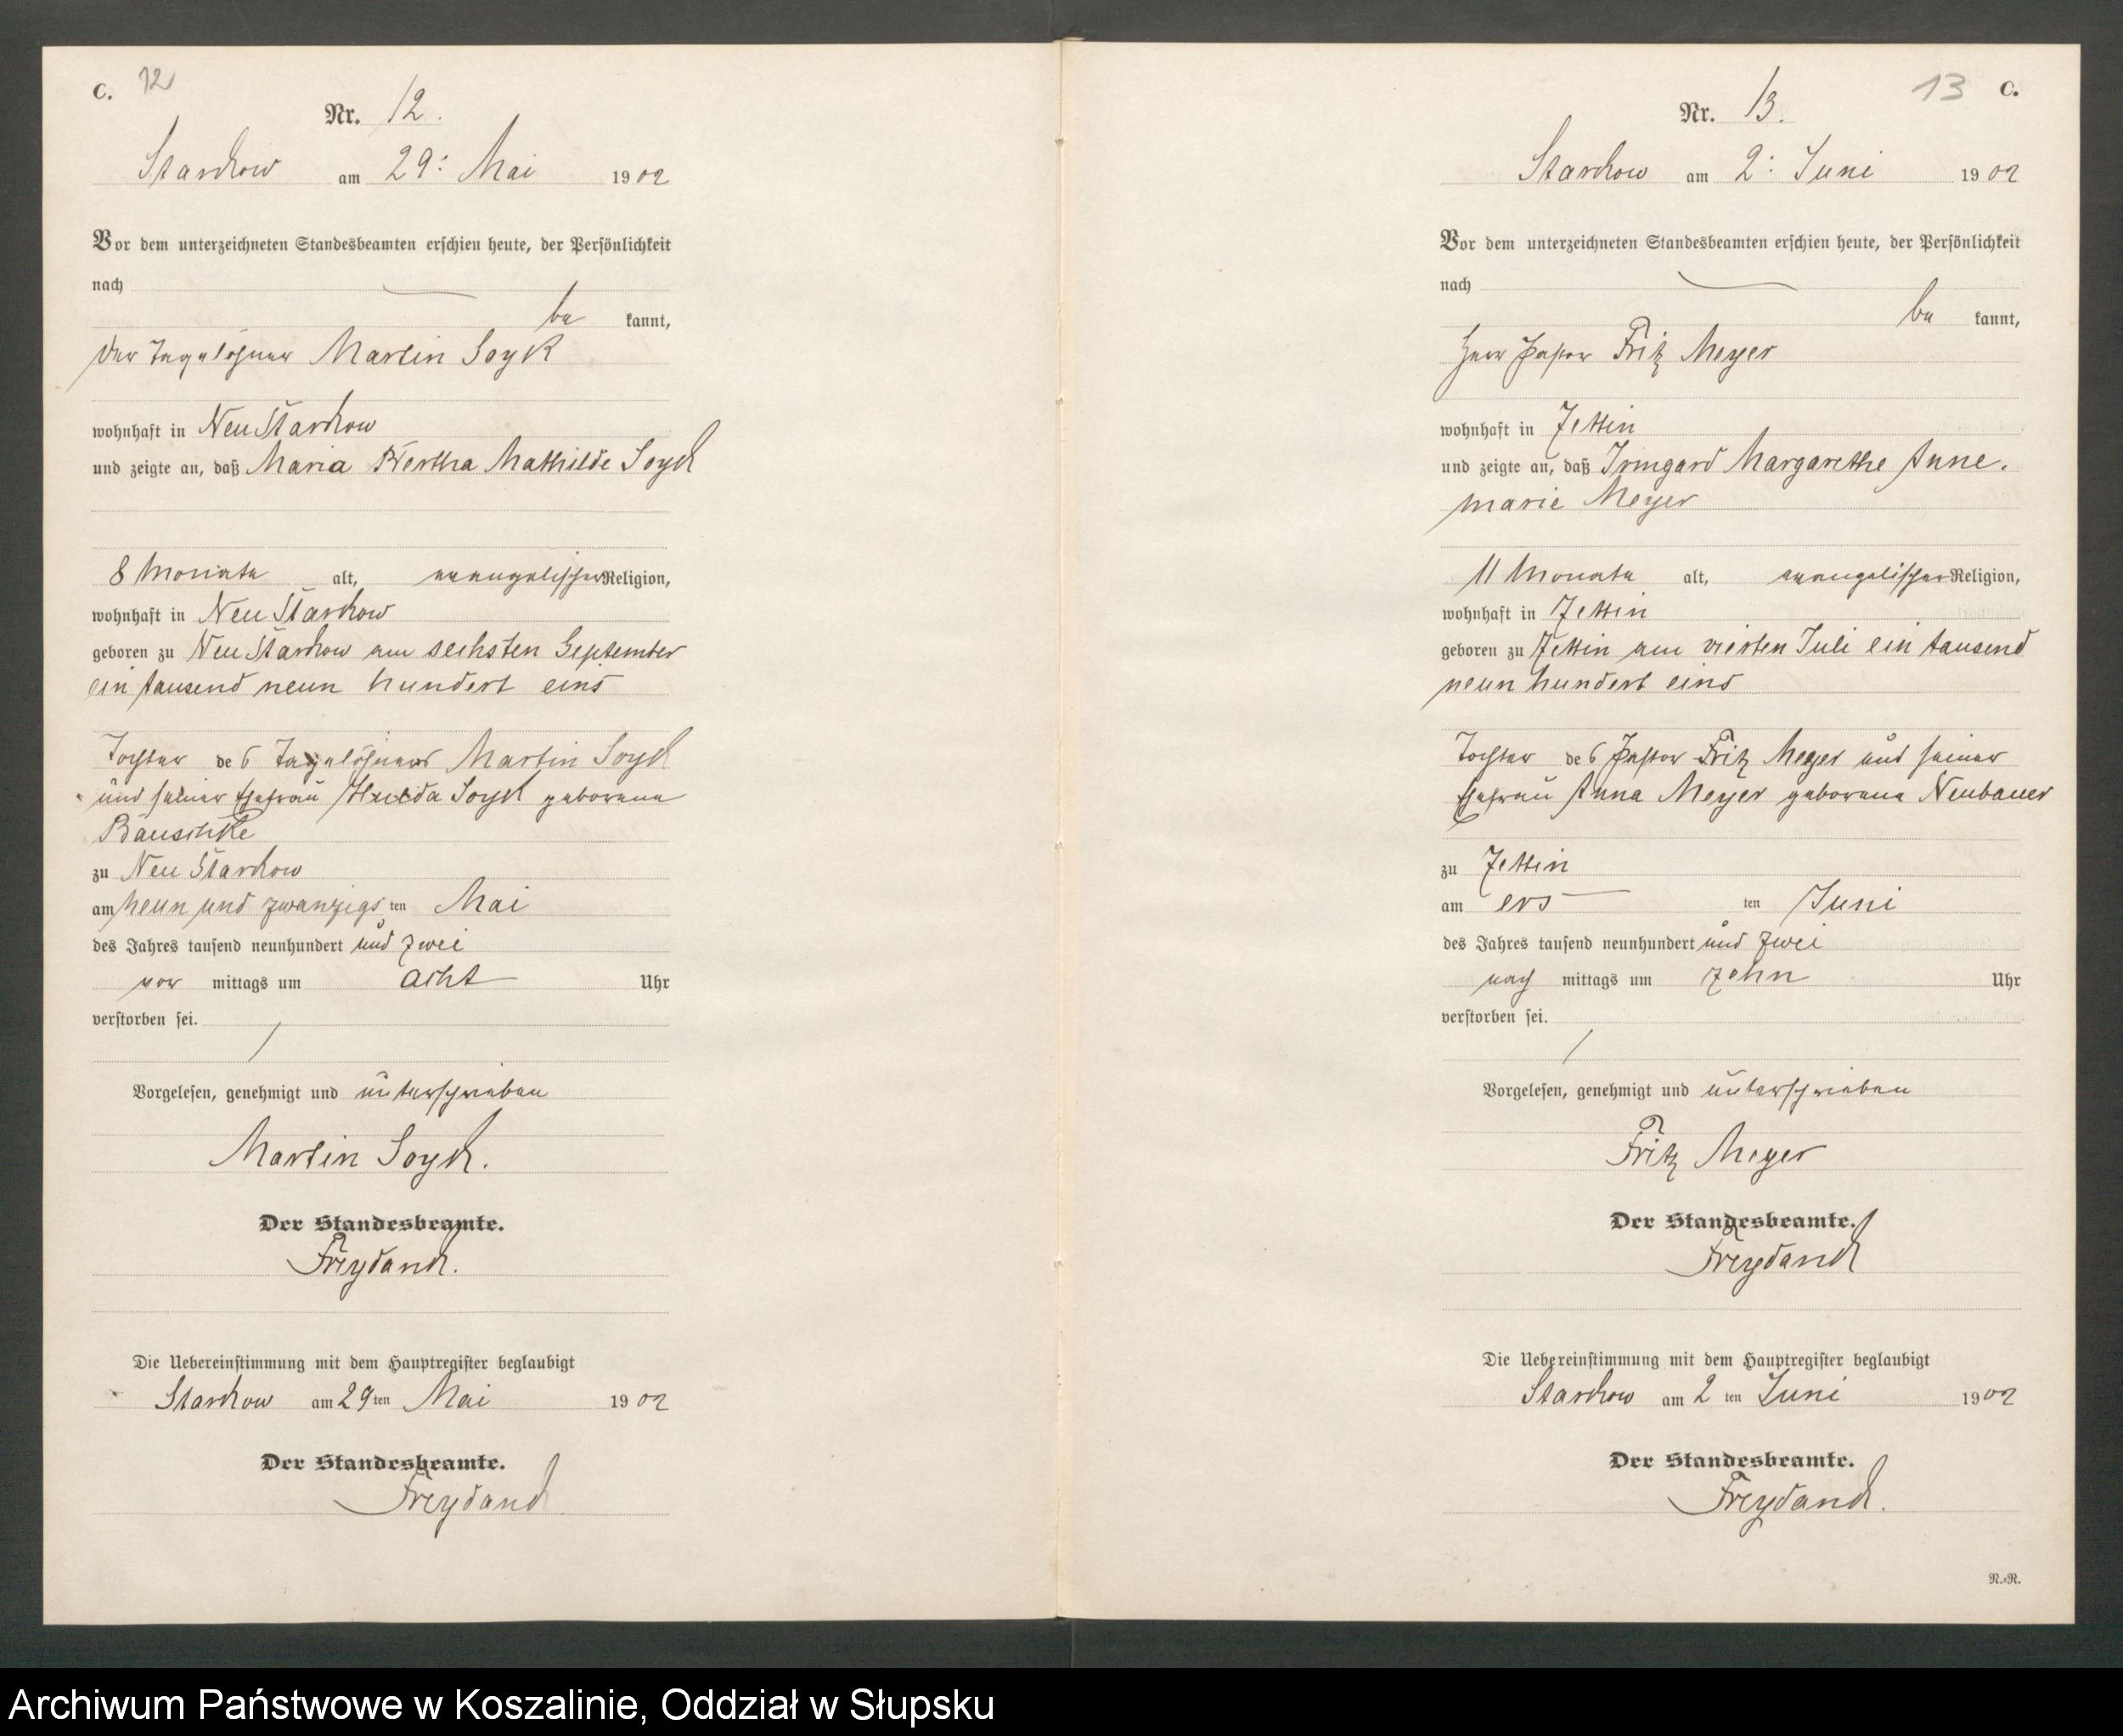 C. 12
Nr. 12.
Starckow am 29: Mai 1902
Vor dem unterzeichneten Standesbeamten erschien heute, der Persönlichkeit
nach
be kannt,
der Tagelöhner Martin Soyk
wohnhaft in Neu Starckow
und zeigte an, daß Maria Bertha Mathilde Soyck
8 Monate alt, evangelischer Religion,
wohnhaft in Neu Starckow
geboren zu Neu Starckow am sechsten September
ein tausend neun hundert eins
Tochter des Tagelöhners Martin Soyck
und seiner Ehefrau Hulda Soyck geborene
Bauschke
zu Neu Starckow
am neun und zwanzigs ten Mai
des Jahres tausend neunhundert und zwei
vor mittags um acht Uhr
verstorben sei.
Vorgelesen, genehmigt und unterschrieben
Martin Soyck.
Der Standesbeamte.
Freydanck.
Die Uebereinstimmung mit dem Hauptregister beglaubigt
Starckow am 29 ten Mai 1902
Der Standesbeamte.
Freydanck
13 C.
Nr. 13.
Starckow am 2: Juni 1902
Vor dem unterzeichneten Standesbeamten erschien heute, der Persönlichkeit
nach
be kannt,
Herr Pastor Fritz Meyer
wohnhaft in Zettin
und zeigte an, daß Irmgard Margarethe Anne-
marie Meyer
11 Monate alt, evangelischer Religion,
wohnhaft in Zettin
geboren zu Zettin am vierten Juli ein tausend
neun hundert eins
Tochter des Pastor Fritz Meyer und seiner
Ehefrau Anna Meyer geborene Neubauer
zu Zettin
am ers ten Juni
des Jahres tausend neunhundert und zwei
nach mittags um zehn Uhr
verstorben sei.
Vorgelesen, genehmigt und unterschrieben
Fritz Meyer
Der Standesbeamte.
Freydanck
Die Uebereinstimmung mit dem Hauptregister beglaubigt
Starckow am 2 ten Juni 1902
Der Standesbeamte.
Freydanck.
N.=N.
Archiwum Państwowe w Koszalinie, Oddział w Słupsku